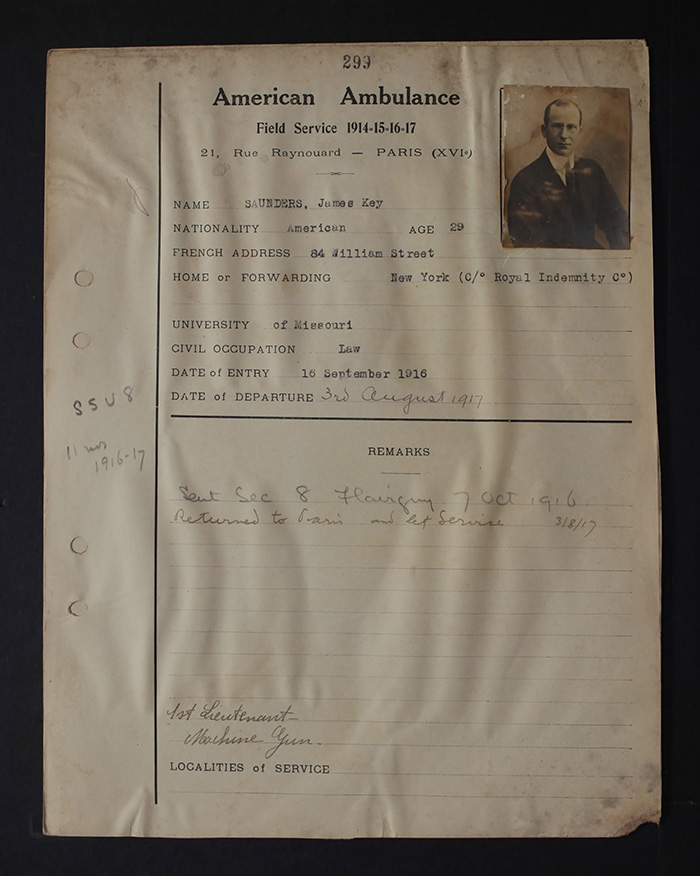 299
American Ambulance
Field Service 1914-15-16-17
21, Rue Raynouard — PARIS (XVIe)
NAME SAUNDERS, James Key
NATIONALITY American AGE 29
FRENCH ADDRESS 84 William Street
HOME or FORWARDING New York (C/o Royal Indemnity Co)
UNIVERSITY of Missouri
CIVIL OCCUPATION Law
DATE of ENTRY 16 September 1916
DATE of DEPARTURE 3rd August 1917
SSU 8
11 mos
1916-17
REMARKS
Sent Sec 8 7 Oct 1916
Returned to Paris and left Service 3/8/17
1st Lieutenant
Machine Gun.
LOCALITIES of SERVICE